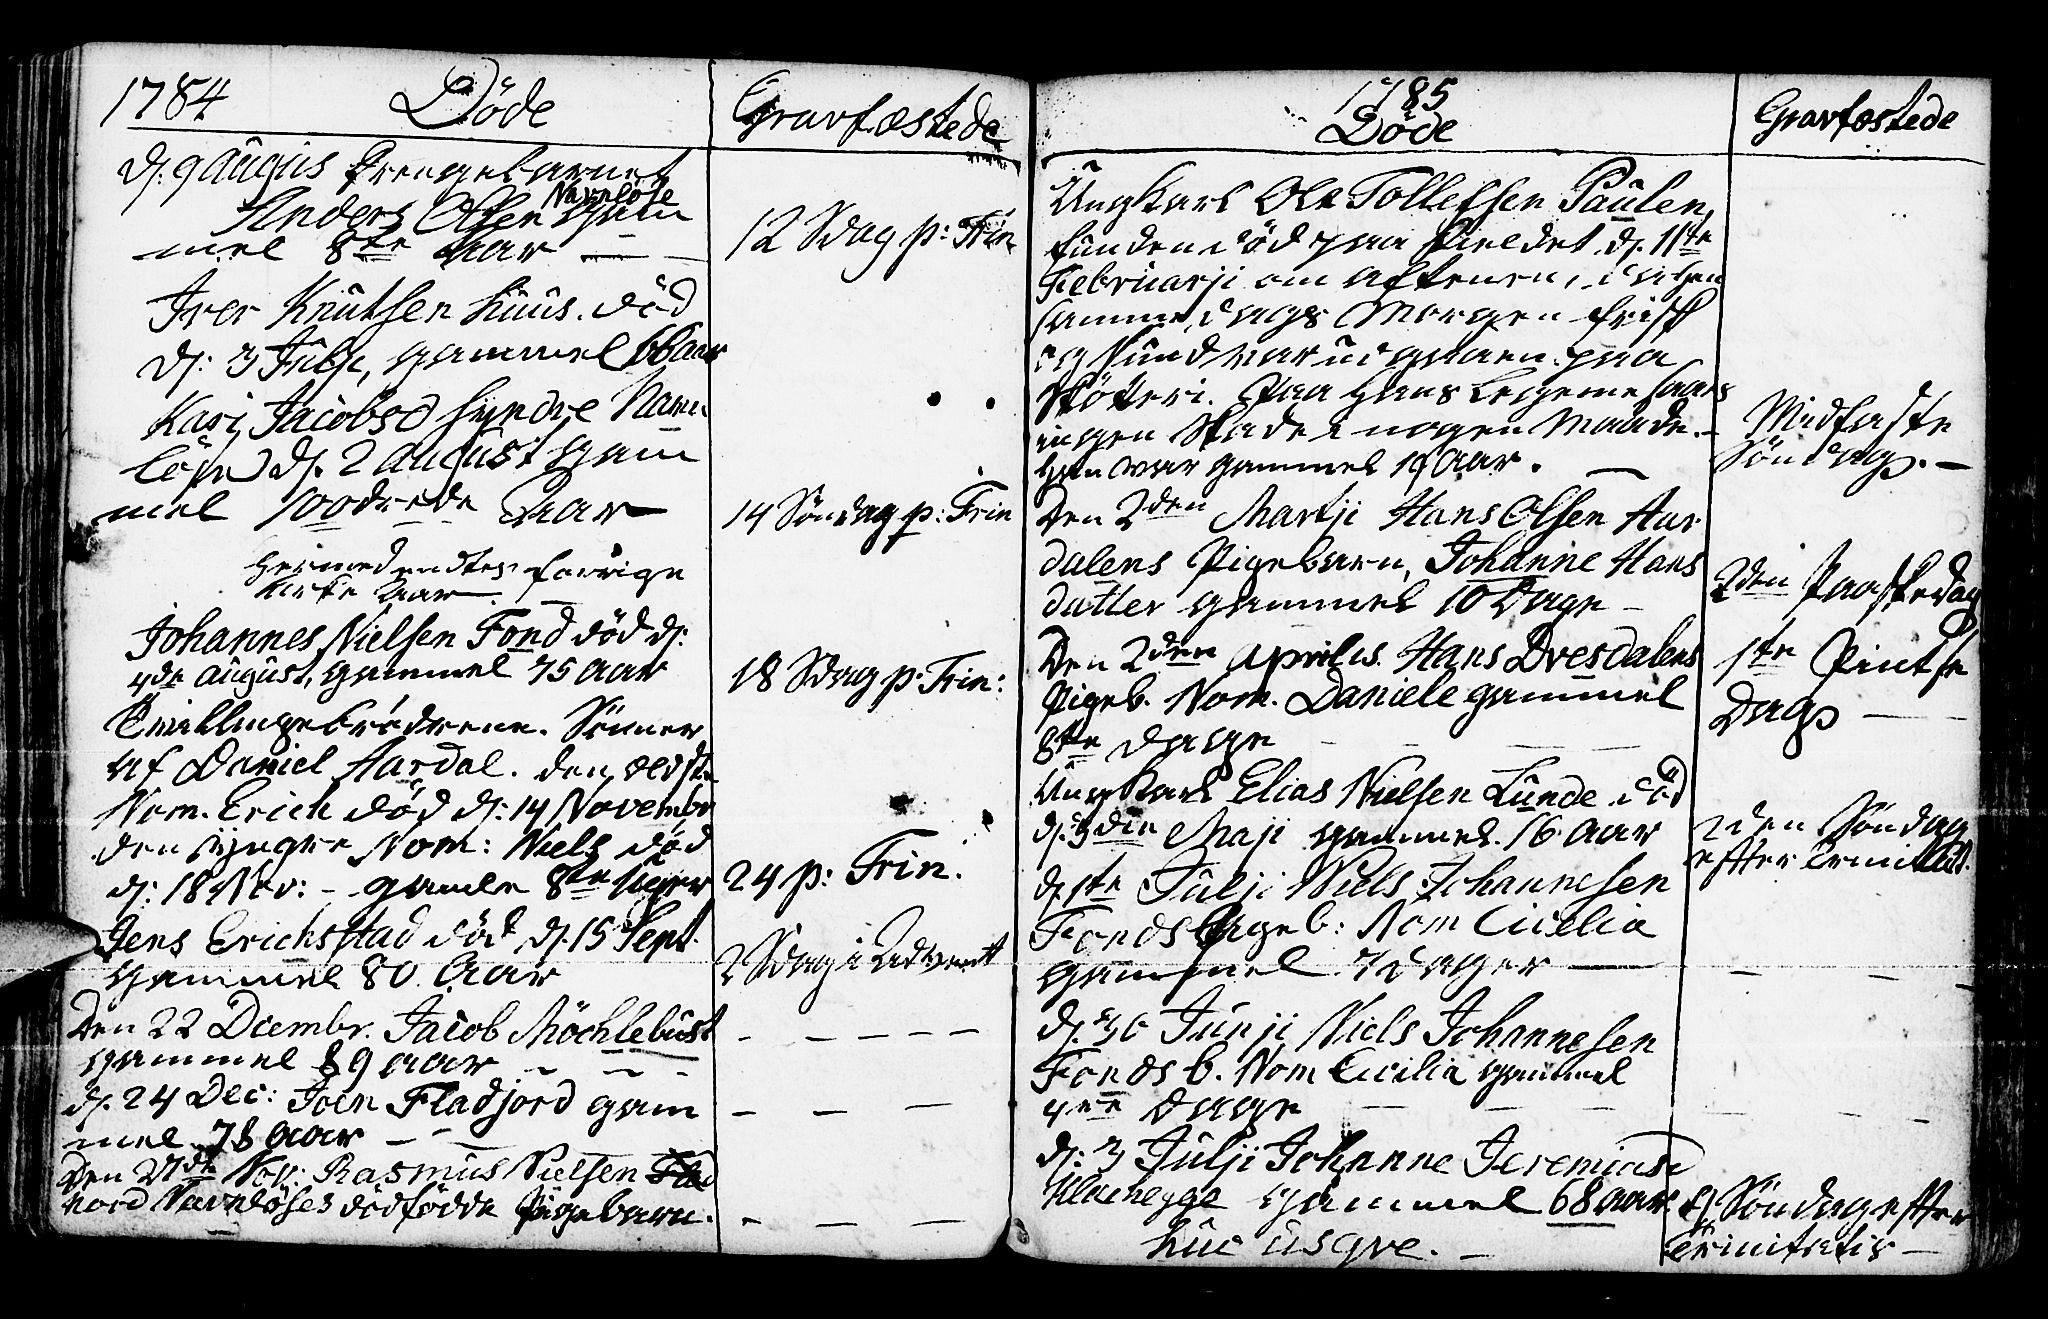 1784 Döde
Gravfæstede
d: 9 Augus Drengebarnet
Anders Olsen Navnlöse Gam
mel 8te Aar —
12 Sdag p: Trin
Iver Knutsen Huus. död
d: 3 Julji, gammel 66 Aar
Kari Jacobsd Syndre Navn
löse d. 2 August Gam
mel 100drede Aar
14 Söndag p: Trin
Hermed endtes forrige
Kirke Aar.
Johannes Nielsen Fond död d:
4de August, gammel 75 Aar
18 Sdag p. Trin:
Tvillingebrödrene. Sönner
af Daniel Aardal. den ældste
Nom. Erich död d: 14 Novembr
den yngre Nom: Niels död
d: 18 Nov: - gamle 8te Uger
24 p: Trin.
Jens Erichstad död d. 15 Sept.
gammel 80 Aar
2 Sdag i Advent
Den 22 Dicembr. Jacob Möchlebust
gammel 89 aar - - -
d. 24 Dec: Joen Fladjord gam
mel 78 Aar - -
Den 27de Nov: Rasmus Nielsen Flad
Nord Navnlöses dödfödde Pigebarn.
1785
Döde
Gravfæstede
Ungkarl Ole Tollefsen Paulen,
funden död paa Fieldet d. 11te
Februarji om Aftenen, da han
samme dags Morgen frisk
og sund var udgaaen paa
Skötteri. Paa hans Legeme saaes
ingen Skade i nogen Maade. -
han var gammel 19 Aar. —
Midfaste
Söndag. —
Den 2den Martji Hans Olsen Aar
dalens Pigebarn, Johanne Hans
datter gammel 10 Dage -
2den Paaskedag
Den 2den Aprilis. Hans Dresdalens
Pigeb. Nom. Daniele gammel
8te dage
1te Pintse
Dag
Ungkarl Elias Nielsen Lunde död
d. 3die Maji gammel. 16 Aar
2den Söndag
efter Trinitat.
d. 1te Julji Niels Johannesen
Fonds Pigeb: Nom Cicelia
gammel 7 Dager —
d. 30 Junji Niels Johannesen
Fonds b. Nom Cicilia gammel
4re Dage
d: 3 Julji Johanne Jeremiasd
Klachegge gammel 68 Aar
9 Söndag effter
Trinitatis —
huc usqve. -